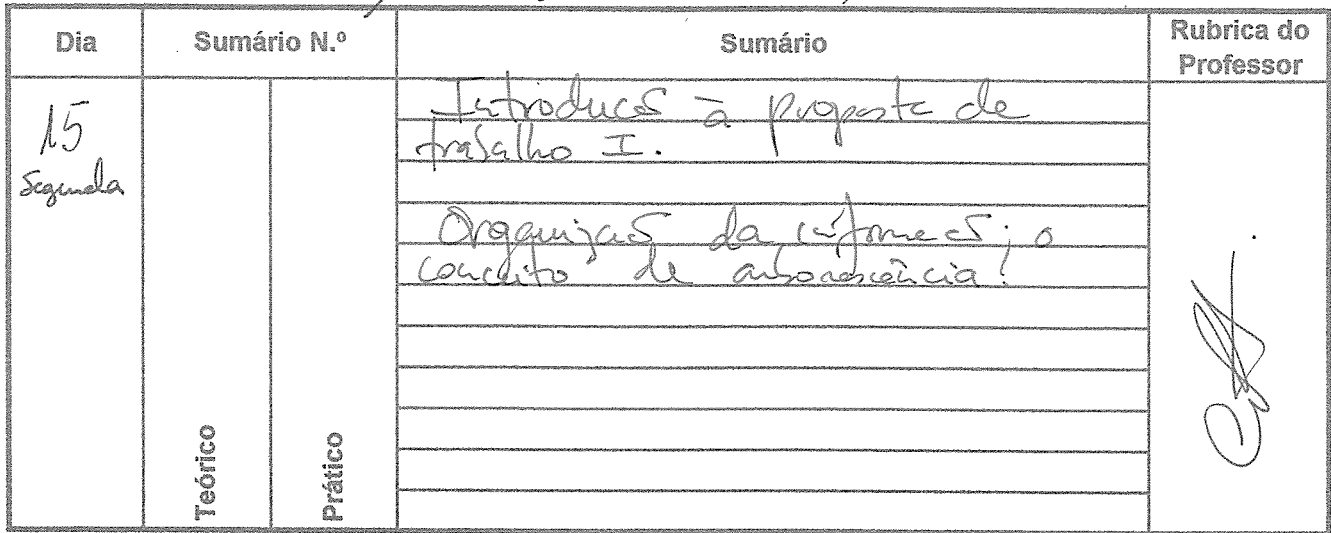 Dia Sumário N.º Sumário Rubrica do Professor
15
Segunda
Teórico
Prático
Introdução à proposta de
trabalho I.
Organização da informação; o
conceito de arborescência.